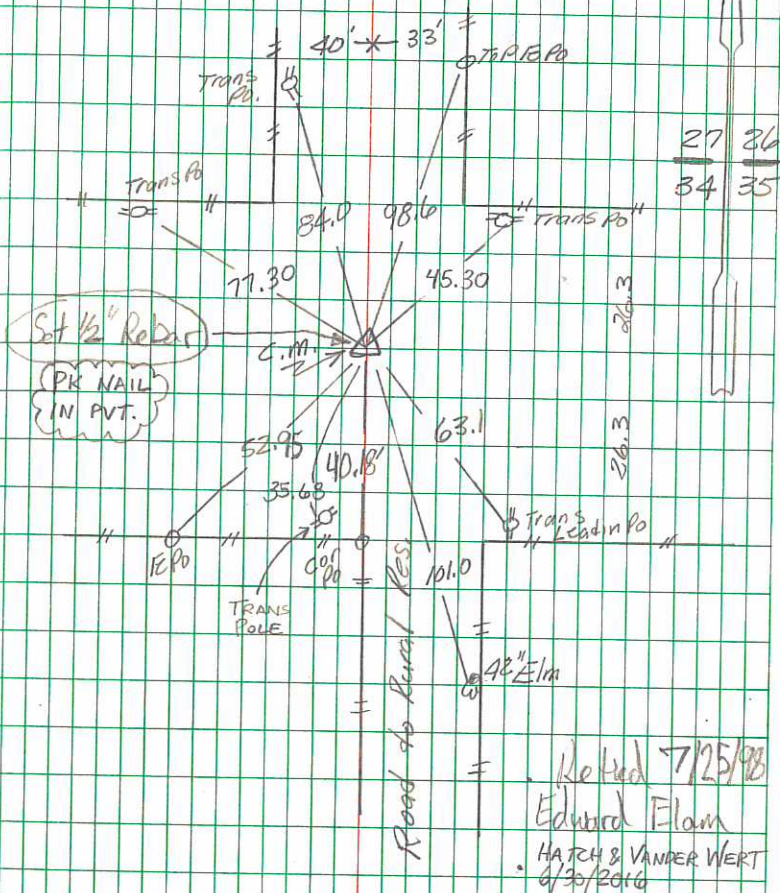 40' 33'
Trans
Po.
Top FE Po
27 26
34 35
Trans Po
84.0 98.6
Trans Po
77.30 45.30
26.3
Set 1/2" Rebar
C.M.
PK NAIL
IN PVT.
52.95
63.1
26.3
40.18'
35.68
Trans
Leadin Po
FE Po
Cor
Po
101.0
TRANS
POLE
42" Elm
Road to Rural Res.
Retied 7/25/98
Edward Elam
HATCH & VANDER WERT
6/30/2016